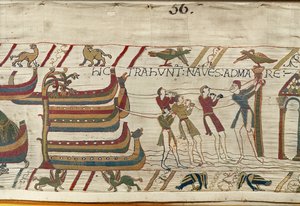 36.
hIC TRAhUNT: NAVES: AD MARE: